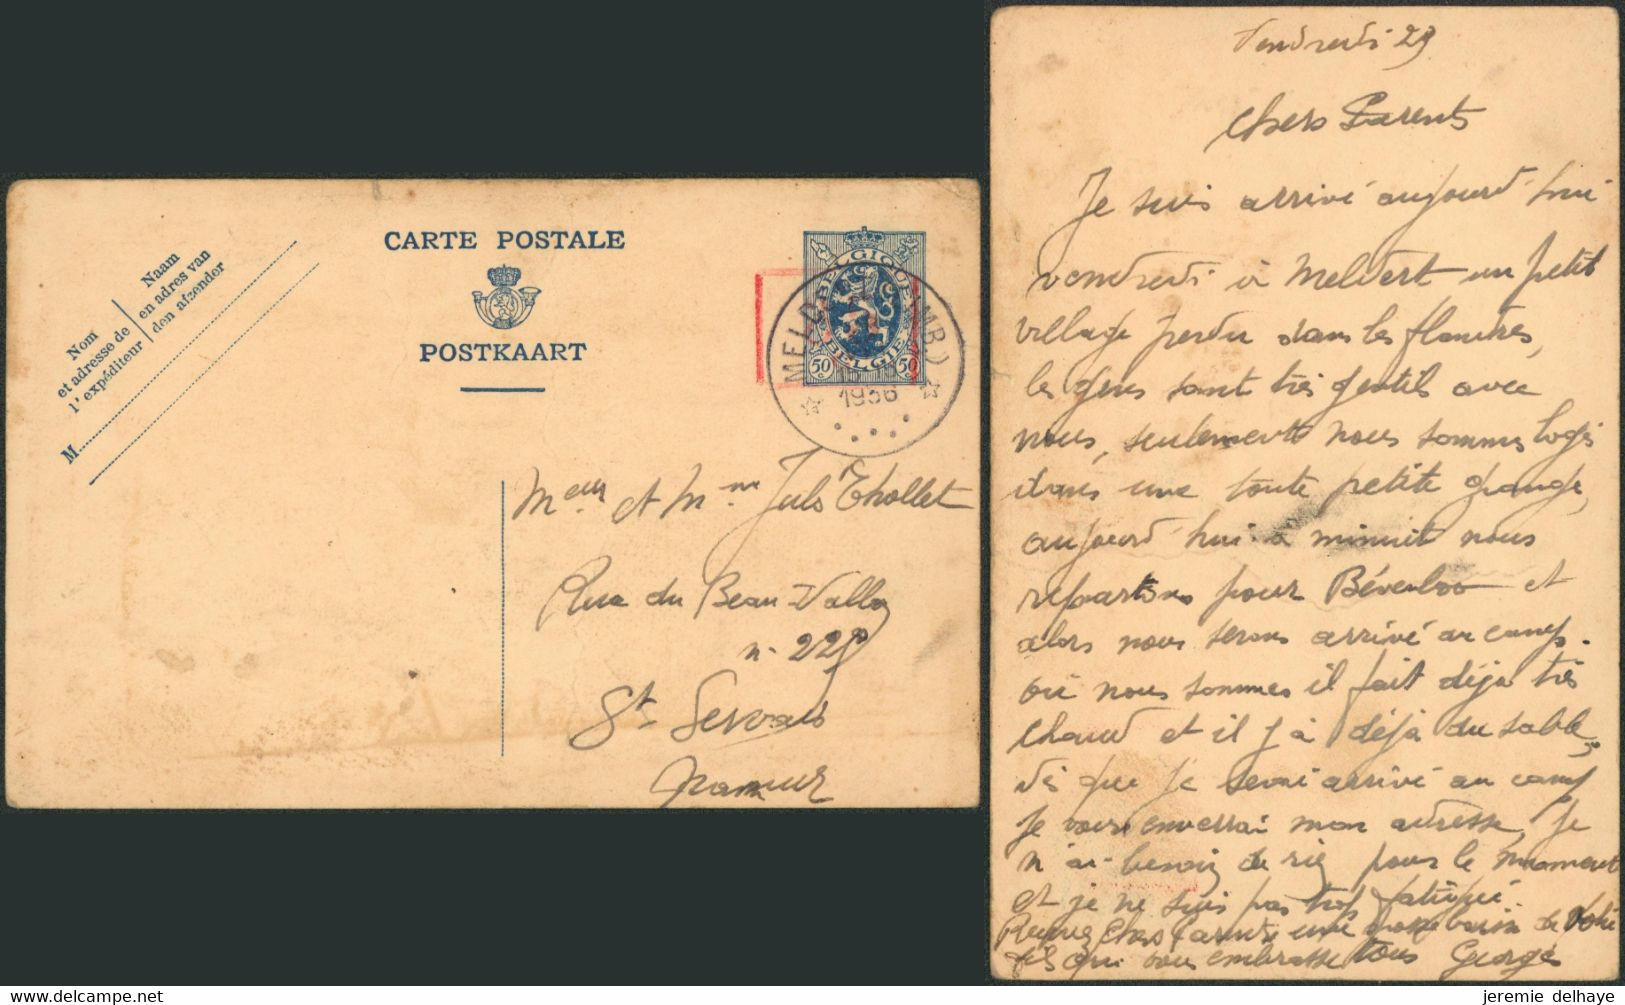 CARTE POSTALE
POSTKAART
Nom
et adresse de
l'expéditeur
Naam
en adres van
den afzender
M
BELGIQUE
BELGIE
50 50
1936
Meur et Mme Jules Thollet
Rue du Beau Vallon
n. 229
St Servais
Namur
Vendredi 29
Chers Parents
Je suis arrivé aujourd'hui
vendredi à Meldert un petit
village perdu dans les flandres,
les gens sont très gentil avec
nous, seulement nous sommes logé
dans une toute petite grange,
aujourd'hui a minuit nous
repartons pour Béverloo et
alors nous serons arrivé au camp.
où nous sommes il fait déja très
chaud et il y a déjà du sable,
dès que je serai arrivé au camp
je vous enverrai mon adresse, je
n'ai besoin de rien pour le moment
et je ne suis pas trop fatigué.
Recevez Chers Parents une grosse de votre
fils qui vous embrasse tous Georges
jeremie delhaye